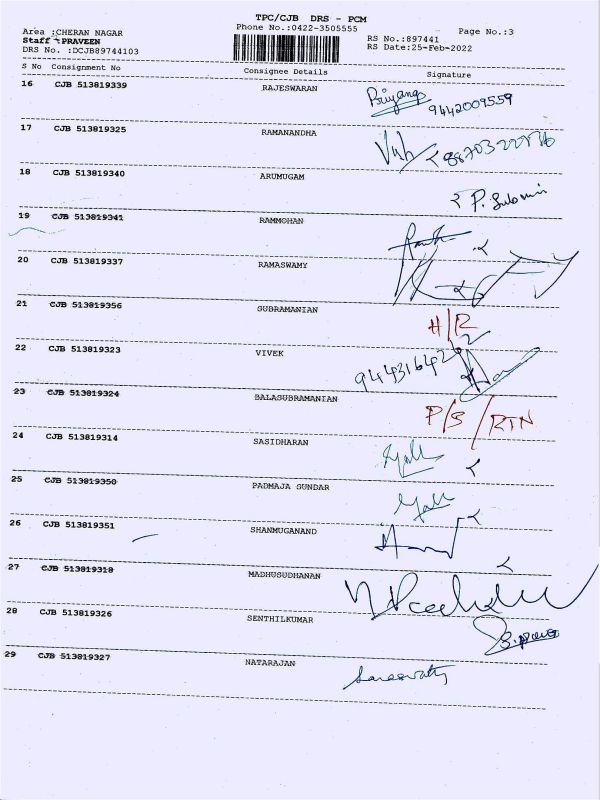 TPC/CJB DRS - PCM
Phone No.:0422-3505555
Page No.:3
Area :CHERAN NAGAR
Staff :PRAVEEN
DRS No. :DCJB89744103
RS No.:897441
RS Date:25-Feb-2022
S No Consignment No Consignee Details Signature
16 CJB 513819339 RAJESWARAN Priyanga 9442009559
17 CJB 513819325 RAMANANDHA
18 CJB 513819340 ARUMUGAM
19 CJB 513819341 RAMMOHAN
20 CJB 513819337 RAMASWAMY
21 CJB 513819356 SUBRAMANIAN H/R
22 CJB 513819323 VIVEK
23 CJB 513819324 BALASUBRAMANIAN P/S/RTN
24 CJB 513819314 SASIDHARAN
25 CJB 513819350 PADMAJA SUNDAR
26 CJB 513819351 SHANMUGANAND
27 CJB 513819318 MADHUSUDHANAN
28 CJB 513819326 SENTHILKUMAR
29 CJB 513819327 NATARAJAN Saraswathy